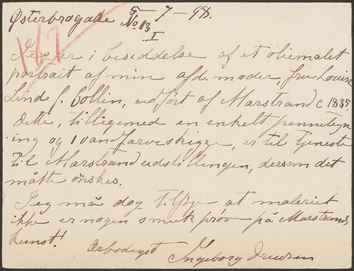 Østerbrogade No 13 I 5-7-98.
Jeg er i besiddelse af et oliemalet
portrait af min afd. moder, Fru Louise
Lind f. Collin, udført af Marstrand c 1835
Dette, tilligemed en enkelt pennetegn-
ing og 1 vandfarveskizze, er til tjeneste
til Marstrandudstillingen, dersom det
måtte ønskes.
Jeg må dog tilføje at maleriet
ikke er nogen smuk prøve på Marstrands
kunst!
Ærbødigst Ingeborg